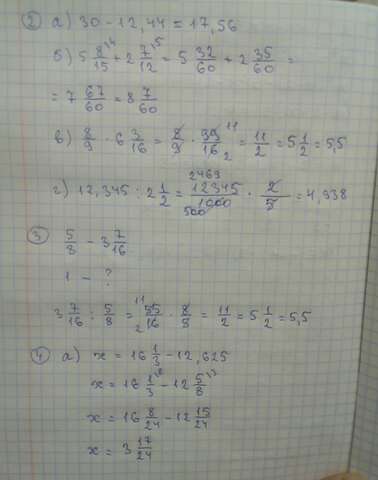 2 а) 30 - 12,44 = 17,56
б) 5 8/15 \4 + 2 7/12 \5 = 5 32/60 + 2 35/60 =
= 7 67/60 = 8 7/60
в) 8/9 · 6 3/16 = 8/9 · 99/16 11 2 = 11/2 = 5 1/2 = 5,5
г) 12,345 : 2 1/2 = 2469 12345/1000 500 · 2/5 = 4,938
3 5/8 - 3 7/16
1 - ?
3 7/16 : 5/8 = 11 55/16 2 · 8/5 = 11/2 = 5 1/2 = 5,5
4 а) x = 16 1/3 - 12,625
x = 16 1/3 \8 - 12 5/8 \3
x = 16 8/24 - 12 15/24
x = 3 17/24